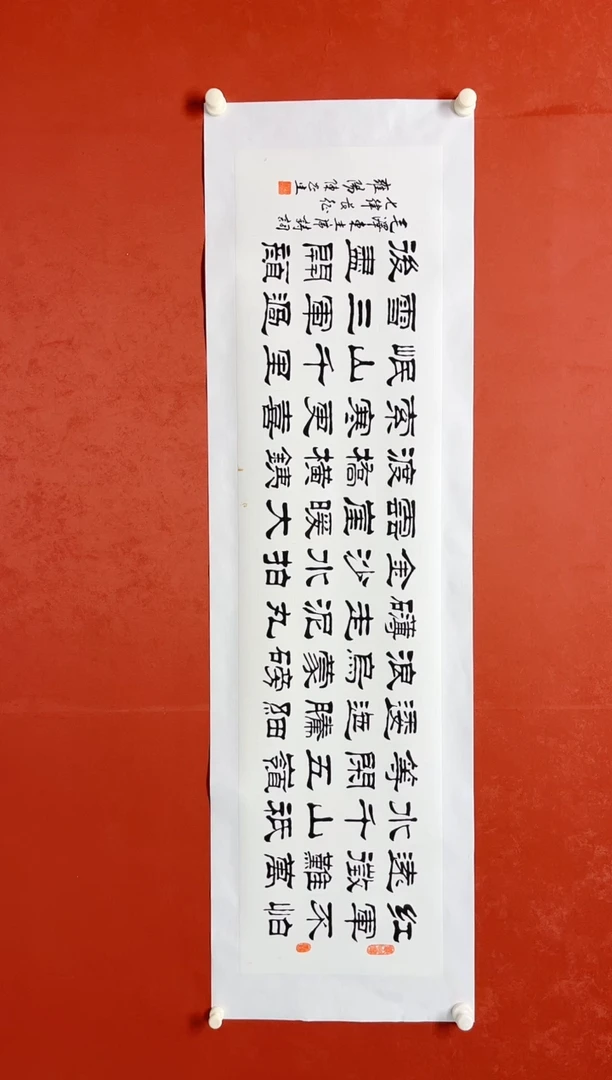 红軍不怕
遠徵難萬
水千山祇
等閑五嶺
逶迤騰細
浪烏蒙磅
礴走泥丸
金沙水拍
雲崖暖大
渡橋橫鐵
索寒更喜
岷山千里
雪三軍過
後盡開顏
毛澤東主席詩詞
七律長征
雍陽陳